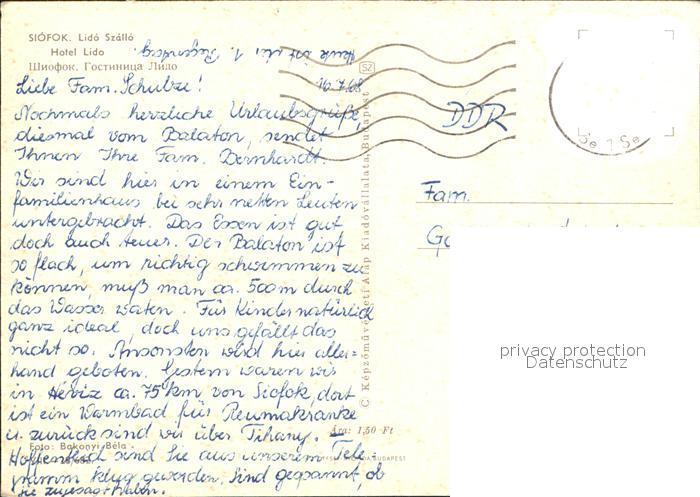 SIÓFOK. Lidó Szálló
Hotel Lido
Шиофок. Гостиница Лидо
Heute ist der 1. Regentag.
Liebe Fam. Schulze!
16.7.68
Nochmals herzliche Urlaubsgrüße,
diesmal vom Balaton, sendet
Ihnen Ihre Fam. Bernhardt.
Wir sind hier in einem Ein-
familienhaus bei sehr netten Leuten
untergebracht. Das Essen ist gut
doch auch teuer. Der Balaton ist
so flach, um richtig schwimmen zu
können, muß man ca. 500m durch
das Wasser waten. Für Kinder natürlich
ganz ideal, doch uns gefällt das
nicht so. Ansonsten wird hier aller=
hand geboten. Gestern waren wir
in Héviz ca. 75 km von Siofok, dort
ist ein Warmbad für Reumakranke
u. zurück sind wir über Tihany. –
Hoffentlich sind Sie aus unserem Tele-
gramm klug geworden. Sind gespannt, ob
Sie zugesagt haben.
Foto: Bakonyi Béla
SZ
C Képzőművészeti Alap Kiadóvállalata, Budapest
Ára: 1,50 Ft
BUDAPEST
DDR
Fam.
privacy protection
Datenschutz
Se 1 Se